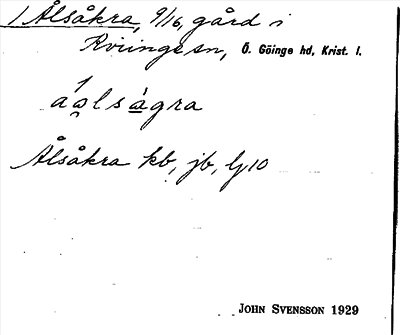 1 Ålsåkra, 9/16, gård i
Kviinge sn, Ö. Göinge hd, Krist. l.
Ålsåkra kb, jb, lj 10
JOHN SVENSSON 1929